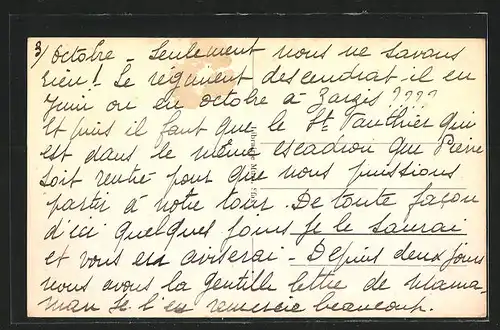 3/ octobre - Seulement nous ne savons
rien! Le régiment descendrat-il en
Juin ou en octobre à Zarzis ????
Et puis il faut que le Lt Vauthier qui
est dans le même escadron que Pierre
soit rentré pour que nous puissions
partir à notre tour. De toute façon
d'ici quelques jours je le saurai
et vous en aviserai - Depuis deux jours
nous avons la gentille lettre de Mama-
man je l'en remercie beaucoup.